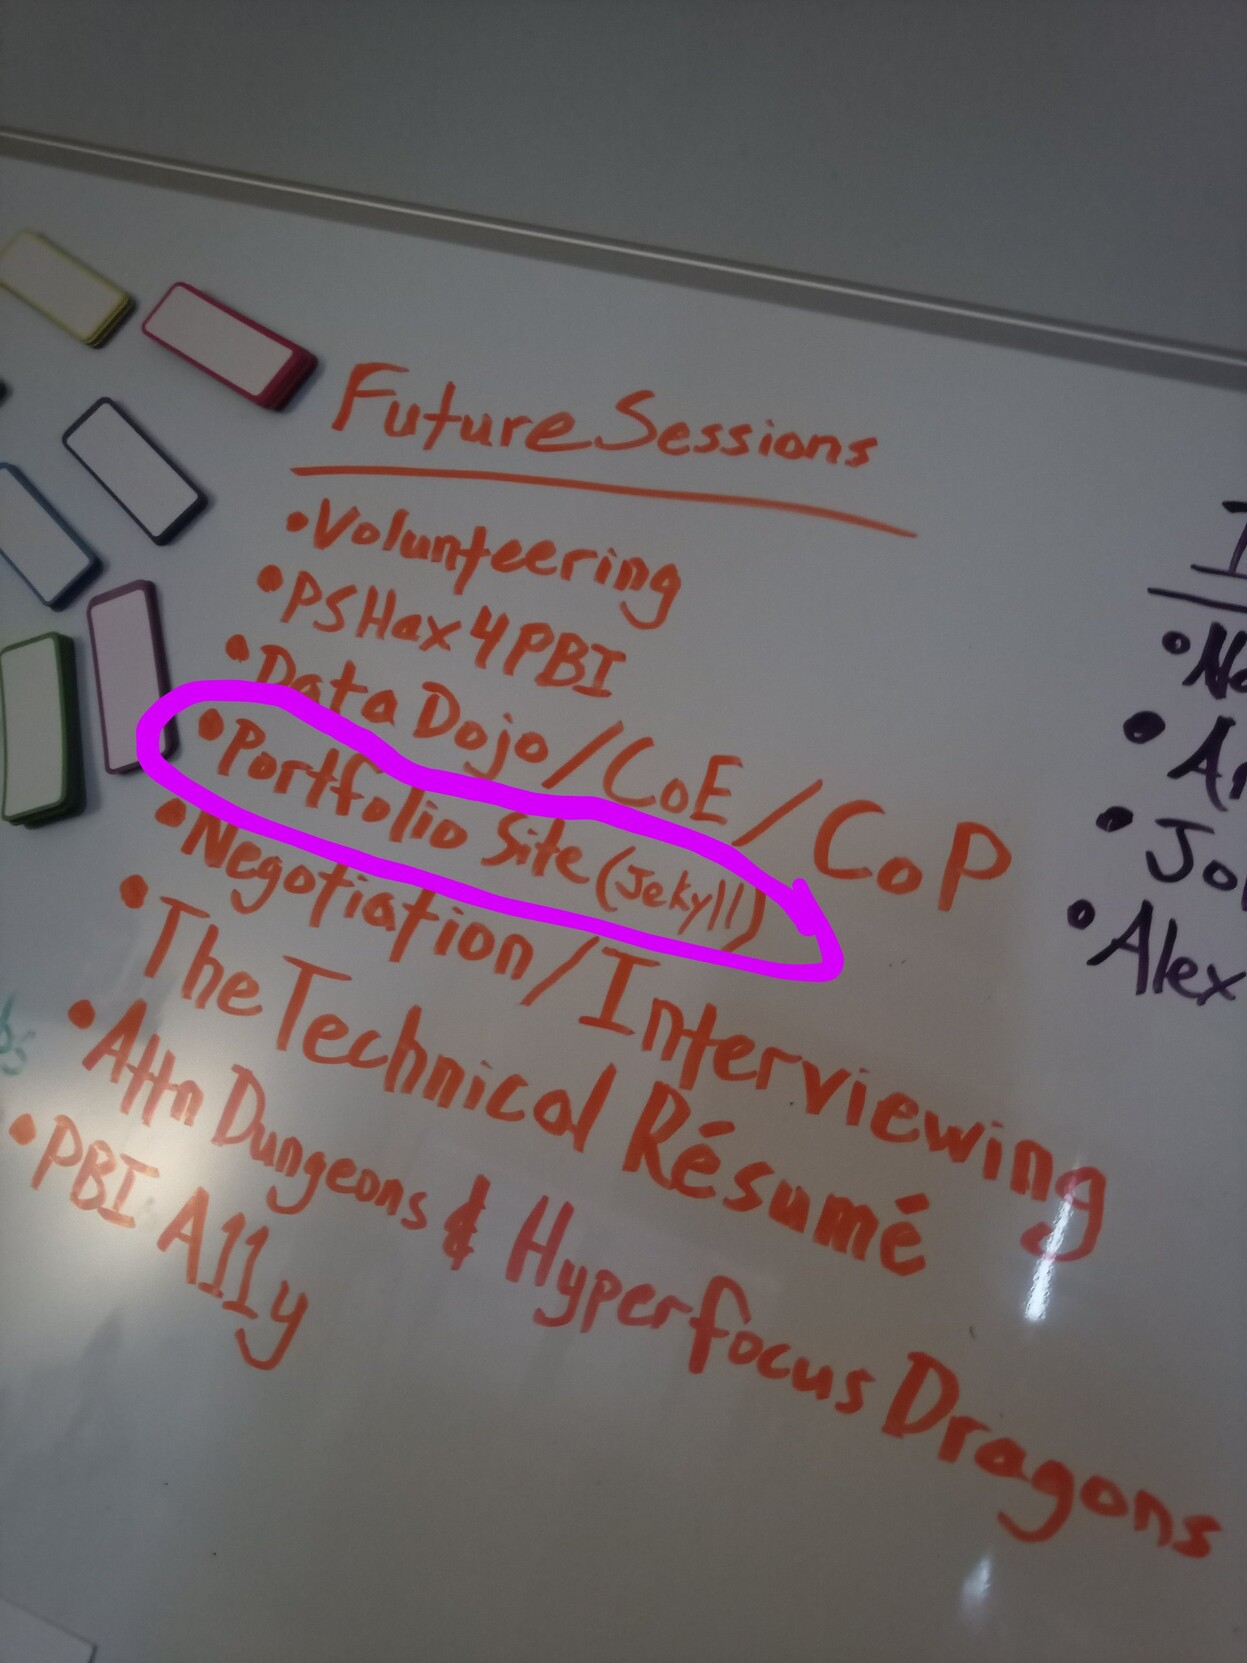 Future Sessions
• Volunteering
• PSHax4PBI
• Data Dojo/CoE/CoP
• Portfolio Site (Jekyll)
• Negotiation/Interviewing
• The Technical Résumé
• Attn Dungeons & Hyperfocus Dragons
• PBI A11y
• Alex